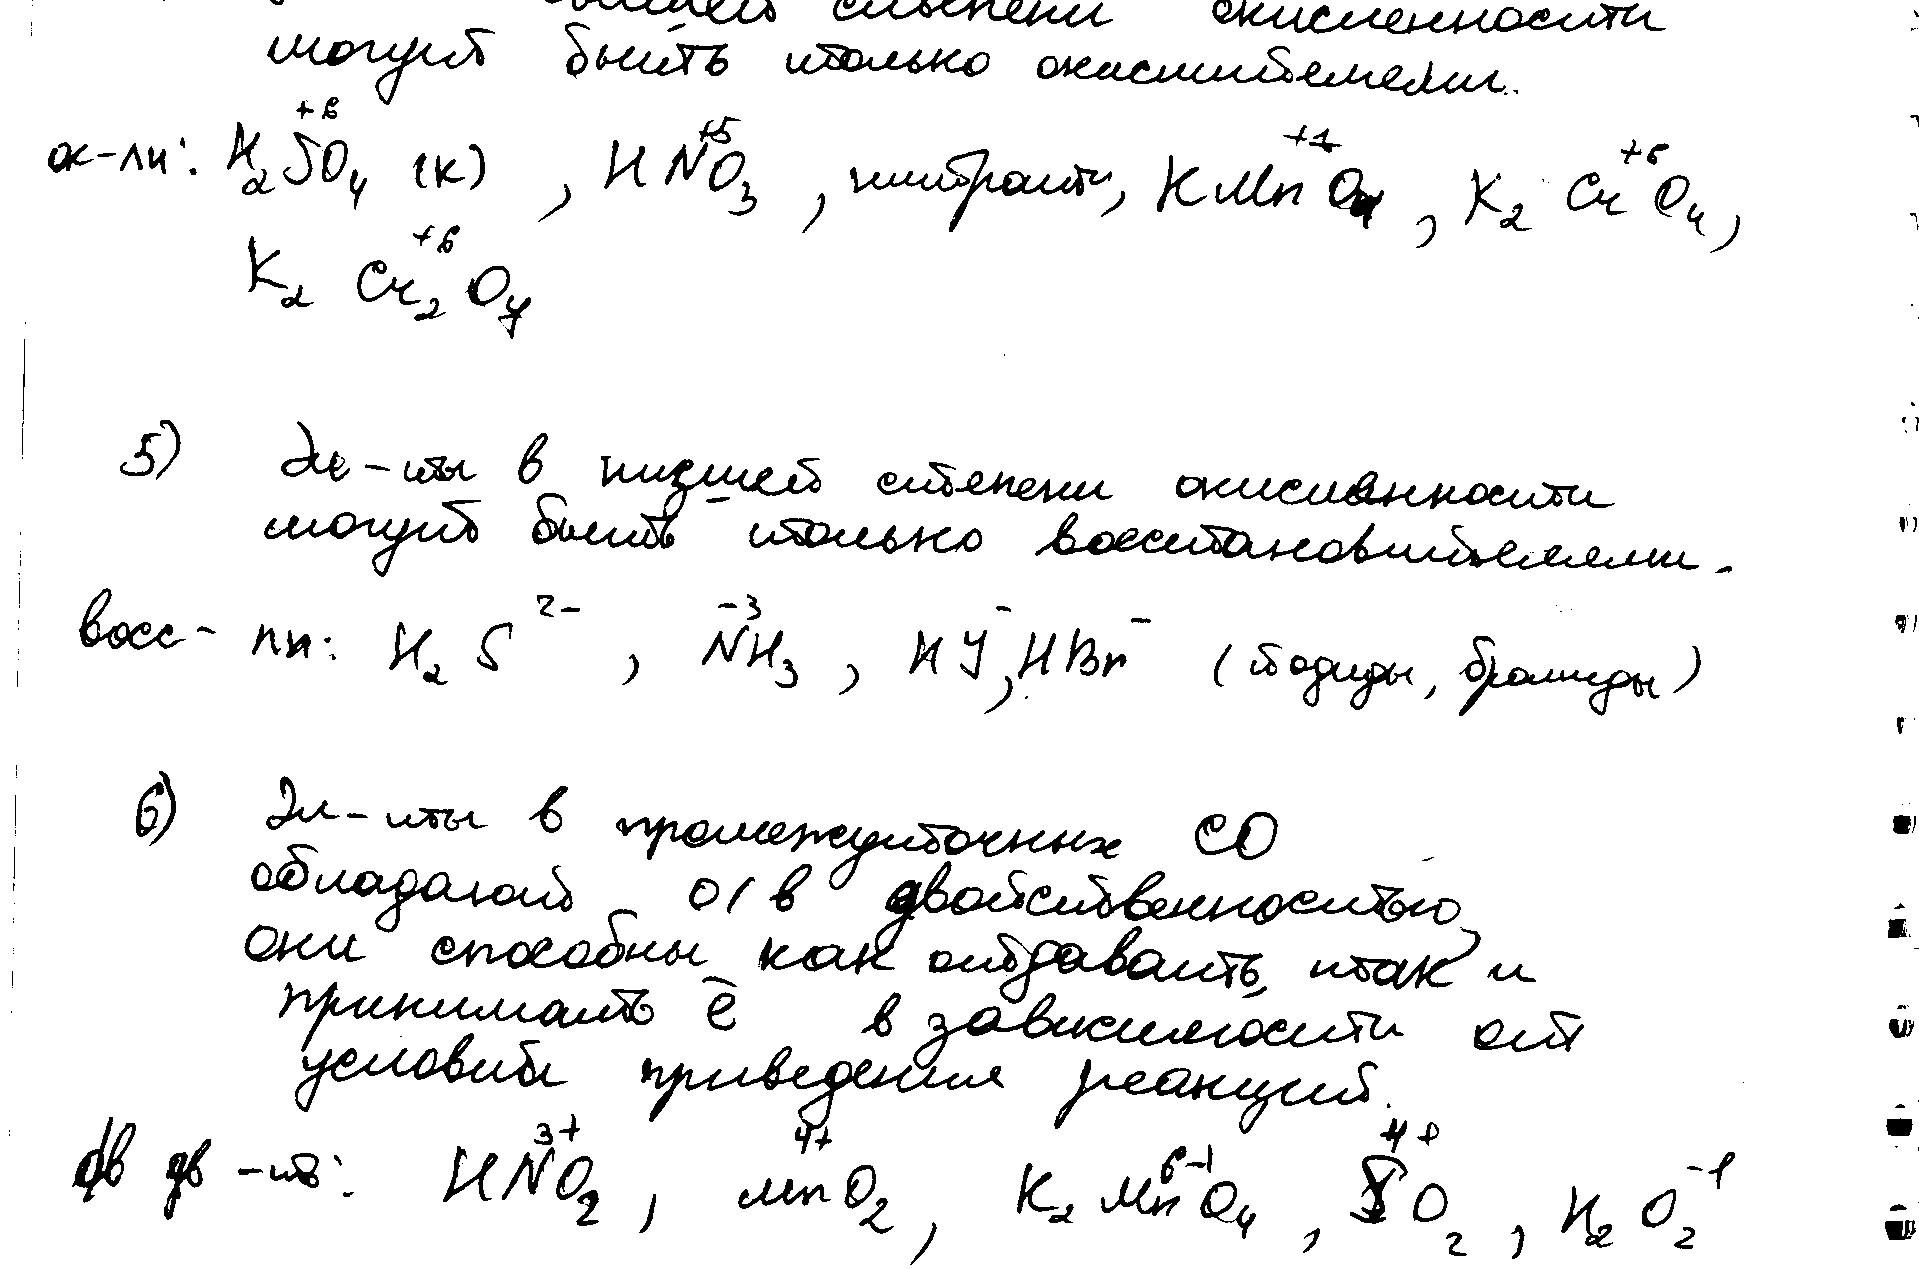 высшей степени окисленности
могут быть только окислителями.
ок-ли: H₂S⁺⁶O₄ (к), HN⁺⁵O₃, нитраты, KMn⁺⁷O₄, K₂Cr⁺⁶O₄,
K₂Cr₂⁺⁶O₇
5) Эл-ты в низшей степени окисленности
могут быть только восстановителями.
восс-ли: H₂S²⁻, N⁻³H₃, HJ⁻, HBr⁻ (йодиды, бромиды)
6) Эл-ты в промежуточных СО
обладают о/в двойственностью,
они способны как отдавать, так и
принимать ē в зависимости от
условий приведения реакций.
о/в дв-ть: HN³⁺O₂, Mn⁴⁺O₂, K₂Mn⁶⁺O₄, S⁴⁺O₂, H₂O₂⁻¹